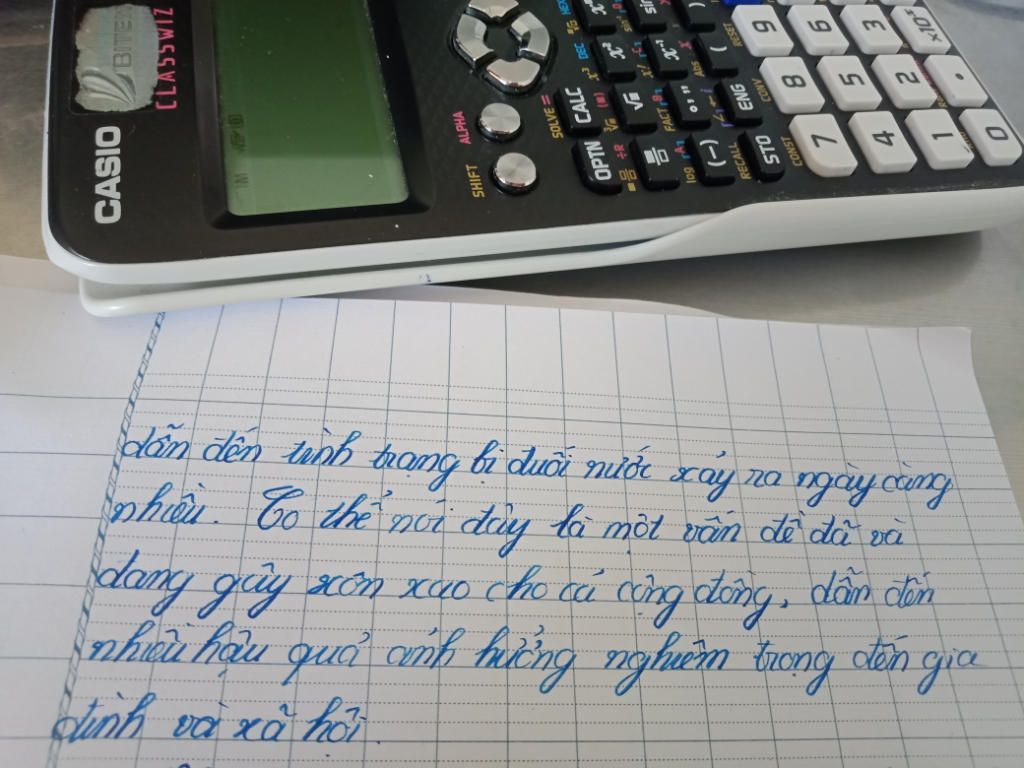 BITEX
CLASSWIZ
CASIO
ALPHA
SHIFT
SOLVE =
CALC
OPTN
x³ DEC
x²
x!
√
FACT
° ' "
ENG
log
(−)
RECALL
STO
RESET
CONV
CONST
Abs
sin
(
)
÷R
M
9 6 3 ×10ˣ
8 5 2 .
7 4 1 0
dẫn đến tình trạng bị đuối nước xảy ra ngày càng
nhiều. Có thể nói đây là một vấn đề đã và
đang gây xôn xao cho cả cộng đồng, dẫn đến
nhiều hậu quả ảnh hưởng nghiêm trọng đến gia
đình và xã hội.